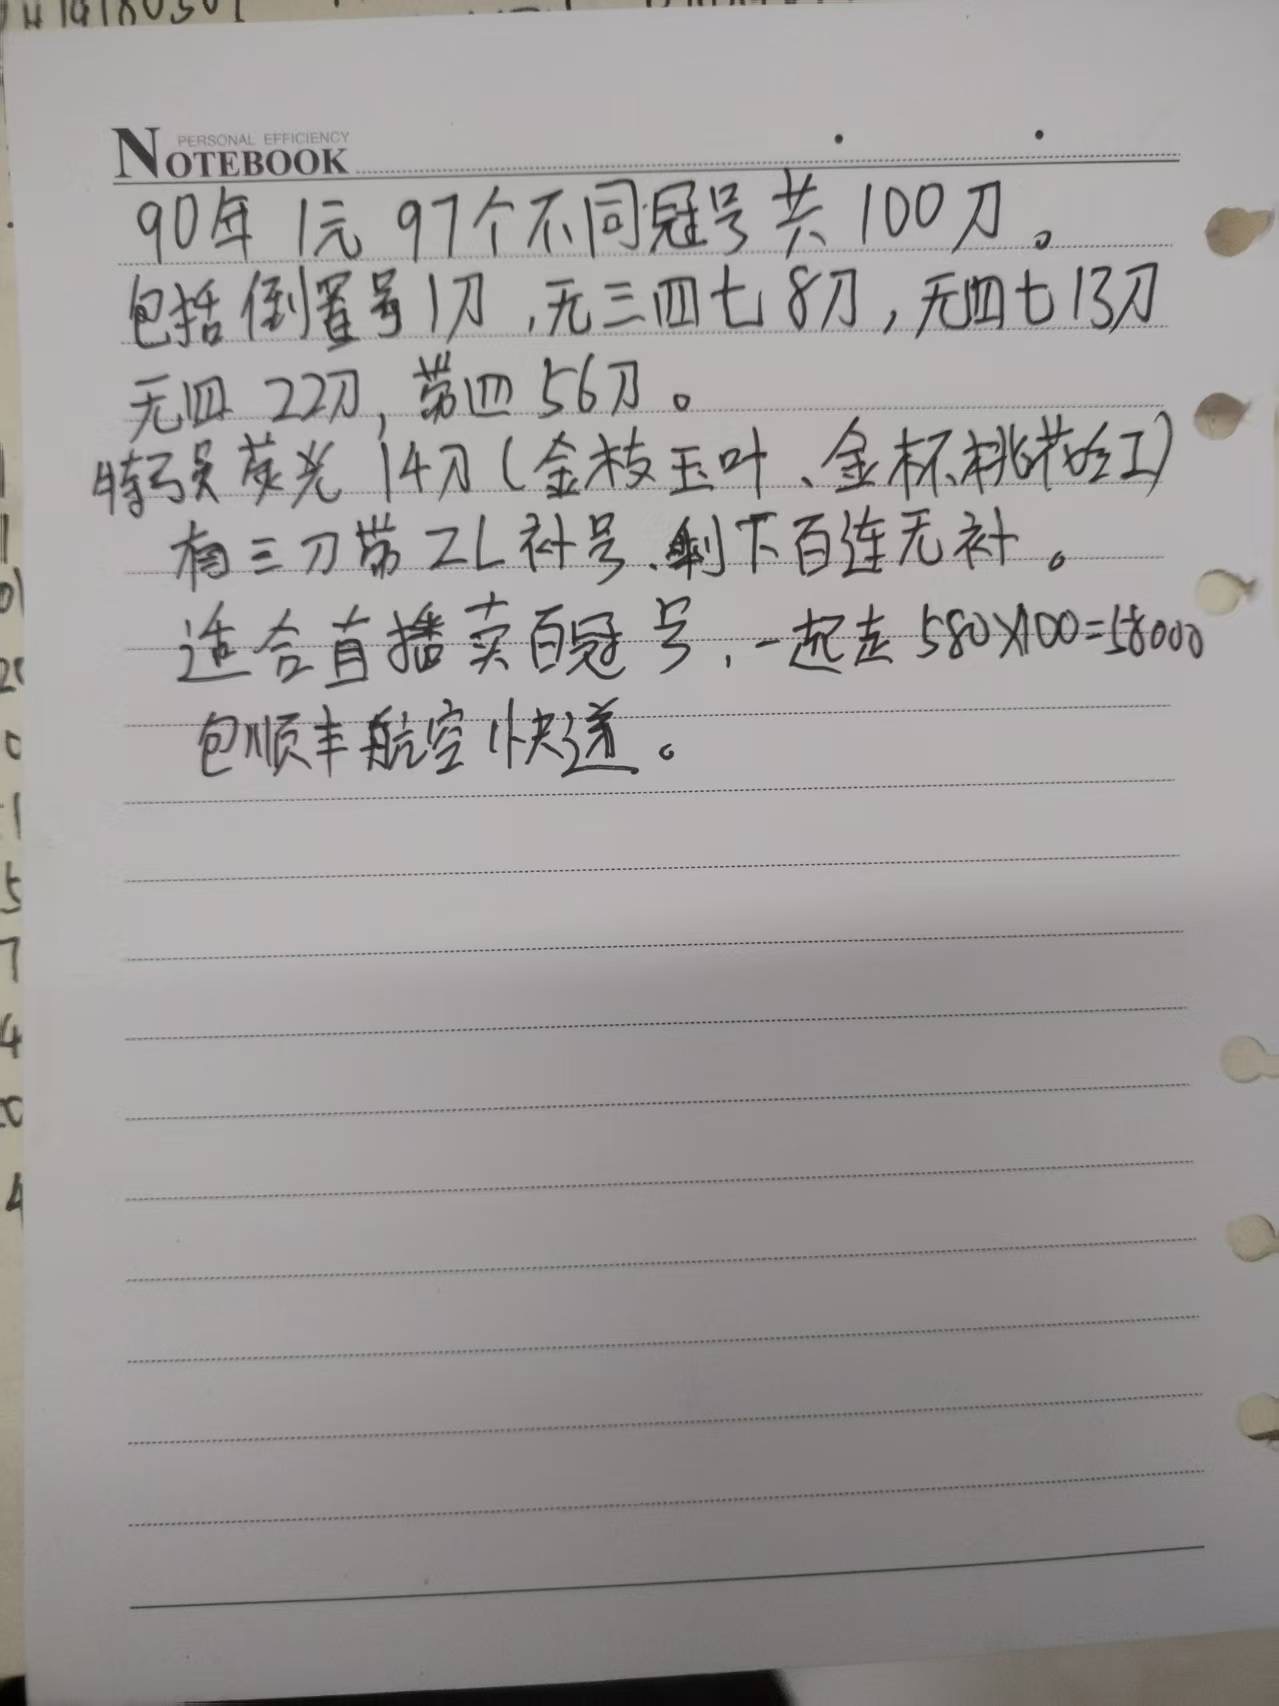 PERSONAL EFFICIENCY
NOTEBOOK
90年 1元 97个不同冠号共 100刀。
包括倒置号1刀,无三四七8刀,无四七13刀
无四 22刀,带四 56刀。
特强荧光 14刀(金枝玉叶、金杯、桃花红)
有三刀带ZL补号、剩下百连无补。
适合直播卖百冠号,一起走580X100=58000
包顺丰航空快递。